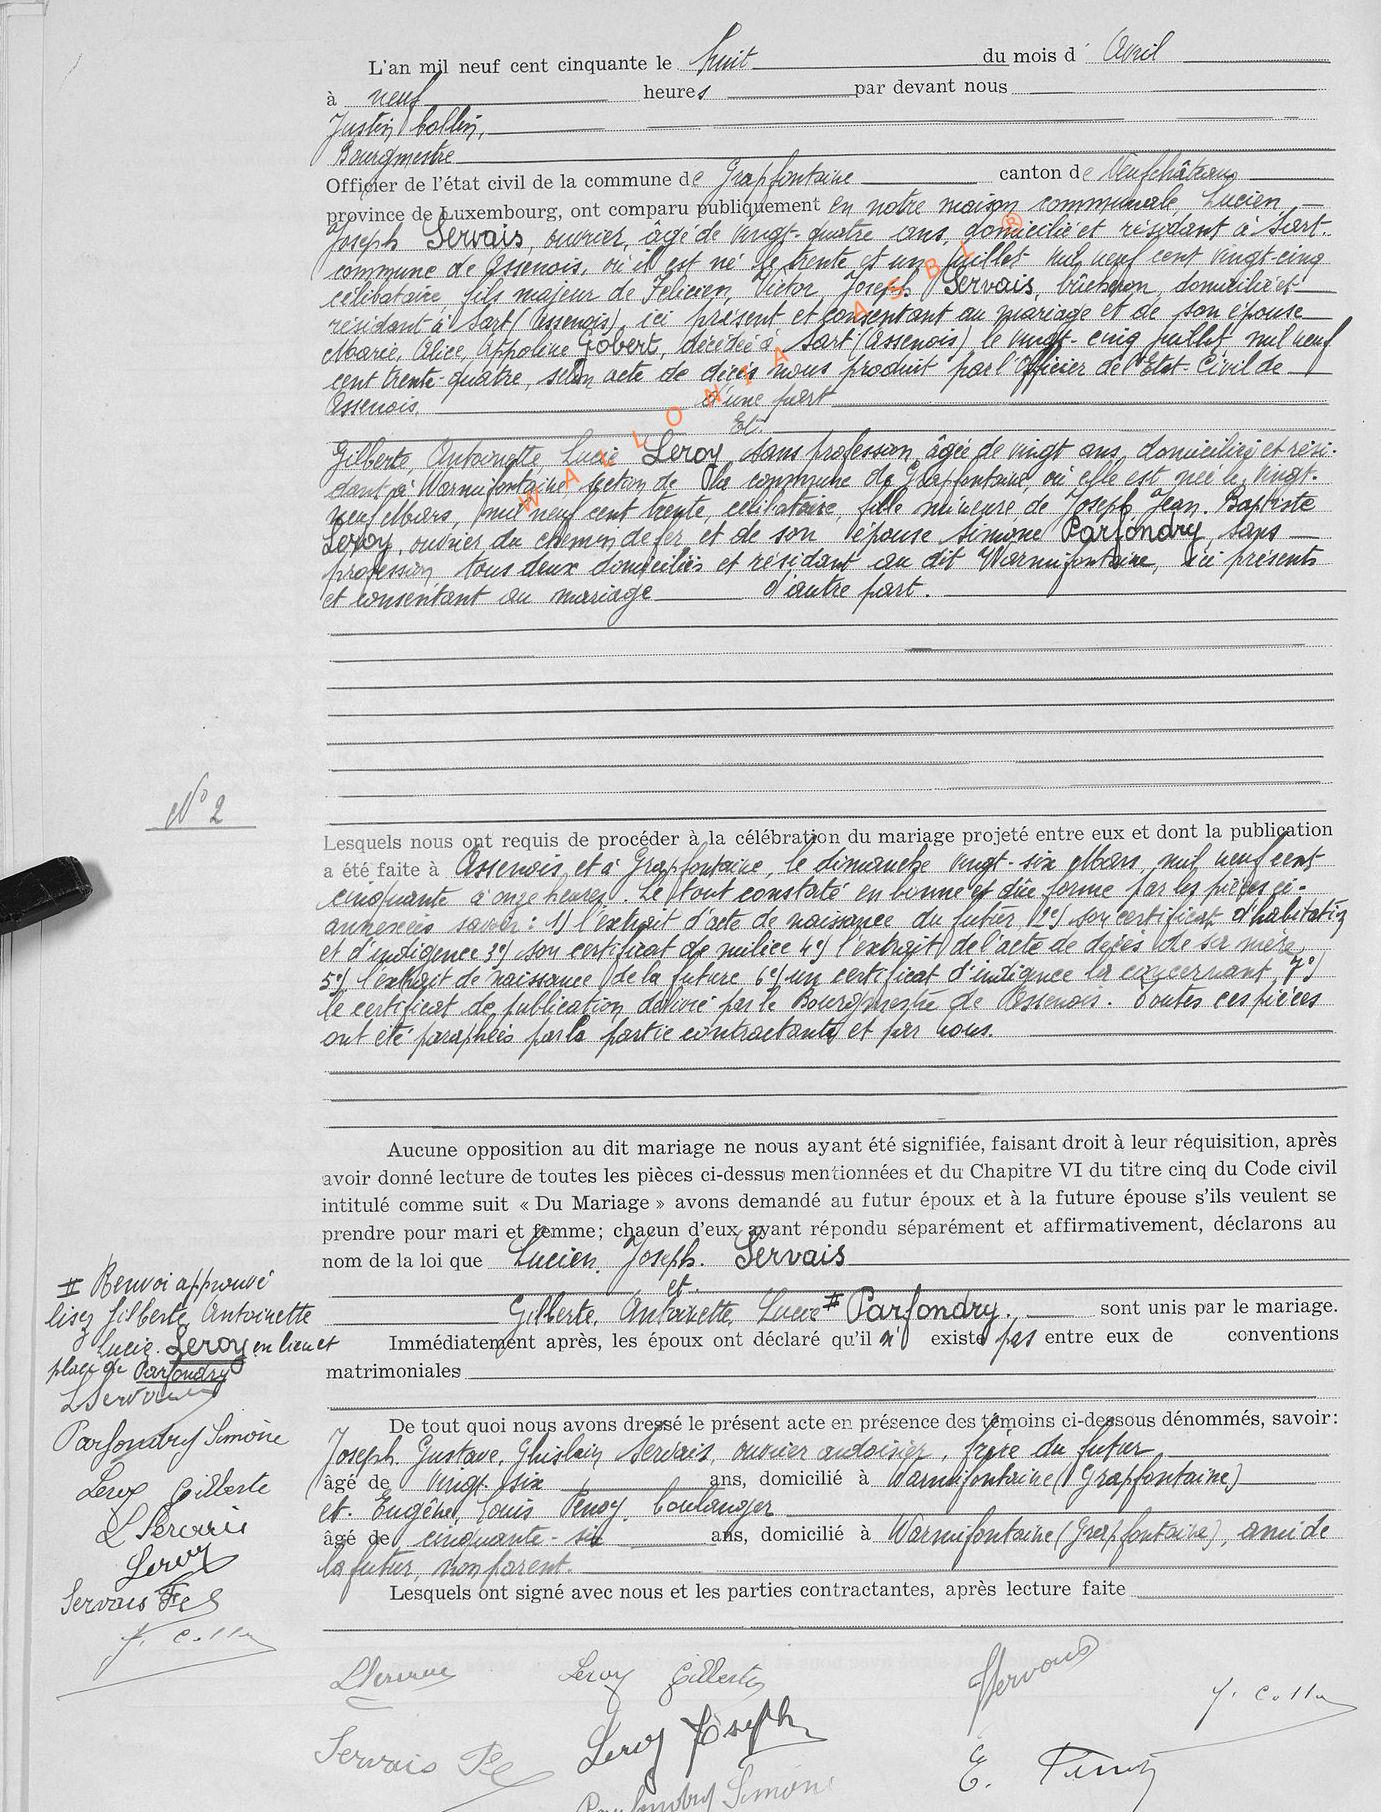 L'an mil neuf cent cinquante le huit du mois d' Avril
à neuf heures par devant nous
Justin Collin,
Bourgmestre
Officier de l'état civil de la commune de Grapfontaine canton de Neufchâteau
province de Luxembourg, ont comparu publiquement en notre maison communale, Lucien,
Joseph Servais, ouvrier, âgé de vingt-quatre ans, domicilié et résidant à Sart-
commune de Assenois, où il est né le trente et un juillet mil neuf cent vingt-cinq
célibataire, fils majeur de Felicien, Victor, Joseph Servais, bûcheron, domicilié et
résidant à Sart (Assenois) ici présent et consentant au mariage et de son épouse
Marie, Alice, Appoline Gobert, décédée à Sart (Assenois) le vingt-cinq juillet mil neuf
cent trente-quatre, selon acte de décès nous produit par l'Officier de l'Etat-Civil de
Assenois d'une part
Et.
Gilberte, Antoinette, Lucie Leroy, sans profession, âgée de vingt ans, domiciliée et rési-
dant à Warmifontaine section de la commune de Grapfontaine, où elle est née le vingt-
neuf Mars, mil neuf cent trente, célibataire, fille mineure de Joseph, Jean-Baptiste
Leroy, ouvrier du chemin de fer, et de son épouse Simone Parfondry, sans
profession, tous deux domiciliés et résidant au dit Warmifontaine, ici présents
et consentant au mariage d'autre part.
N° 2
Lesquels nous ont requis de procéder à la célébration du mariage projeté entre eux et dont la publication
a été faite à Assenois et à Grapfontaine, le dimanche vingt-six Mars, mil neuf cent
cinquante à onze heures. Le tout constaté en bonne et dûe forme par les pièces ci-
annexées savoir: 1) l'extrait d'acte de naissance du futur, 2°) son certificat d'habitation
et d'indigence 3°) son certificat de milice 4°) l'extrait de l'acte de décès de sa mère,
5°) l'extrait de naissance de la future 6°) un certificat d'indigence la concernant, 7°)
le certificat de publication délivré par le Bourgmestre de Assenois. Toutes ces pièces
ont été paraphées par la partie contractante et par nous.
Aucune opposition au dit mariage ne nous ayant été signifiée, faisant droit à leur réquisition, après
avoir donné lecture de toutes les pièces ci-dessus mentionnées et du Chapitre VI du titre cinq du Code civil
intitulé comme suit « Du Mariage » avons demandé au futur époux et à la future épouse s'ils veulent se
prendre pour mari et femme; chacun d'eux ayant répondu séparément et affirmativement, déclarons au
nom de la loi que Lucien, Joseph. Servais
et.
Gilberte, Antoinette, Lucie # Parfondry. sont unis par le mariage.
Immédiatement après, les époux ont déclaré qu'il n' existe pas entre eux de conventions
matrimoniales
# Renvoi approuvé
lisez Gilberte Antoinette
Lucie. Leroy en lieu et
place de Parfondry
L Servais
Parfondry Simone
Leroy Gilberte
L Servais
Leroy
Servais Fel
J. Collin
De tout quoi nous avons dressé le présent acte en présence des témoins ci-dessous dénommés, savoir:
Joseph. Gustave, Ghislain Servais, ouvrier ardoisier, frère du futur
âgé de vingt-six ans, domicilié à Warmifontaine (Grapfontaine)
et. Eugène, Louis Penoy, boulanger
âgé de cinquante-six ans, domicilié à Warmifontaine (Grapfontaine), ami de
la futur, non parent.
Lesquels ont signé avec nous et les parties contractantes, après lecture faite
LServais Leroy Gilberte JServais J. Collin
Servais Fel Leroy Joseph E. Penoy
Parfondry Simone
WALLONIA ASBL ®